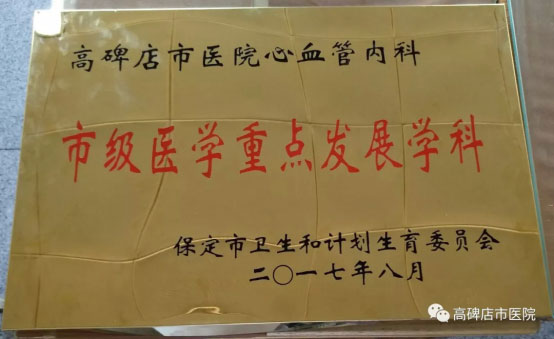 高碑店市医院心血管内科
市级医学重点发展学科
保定市卫生和计划生育委员会
二〇一七年八月
高碑店市医院